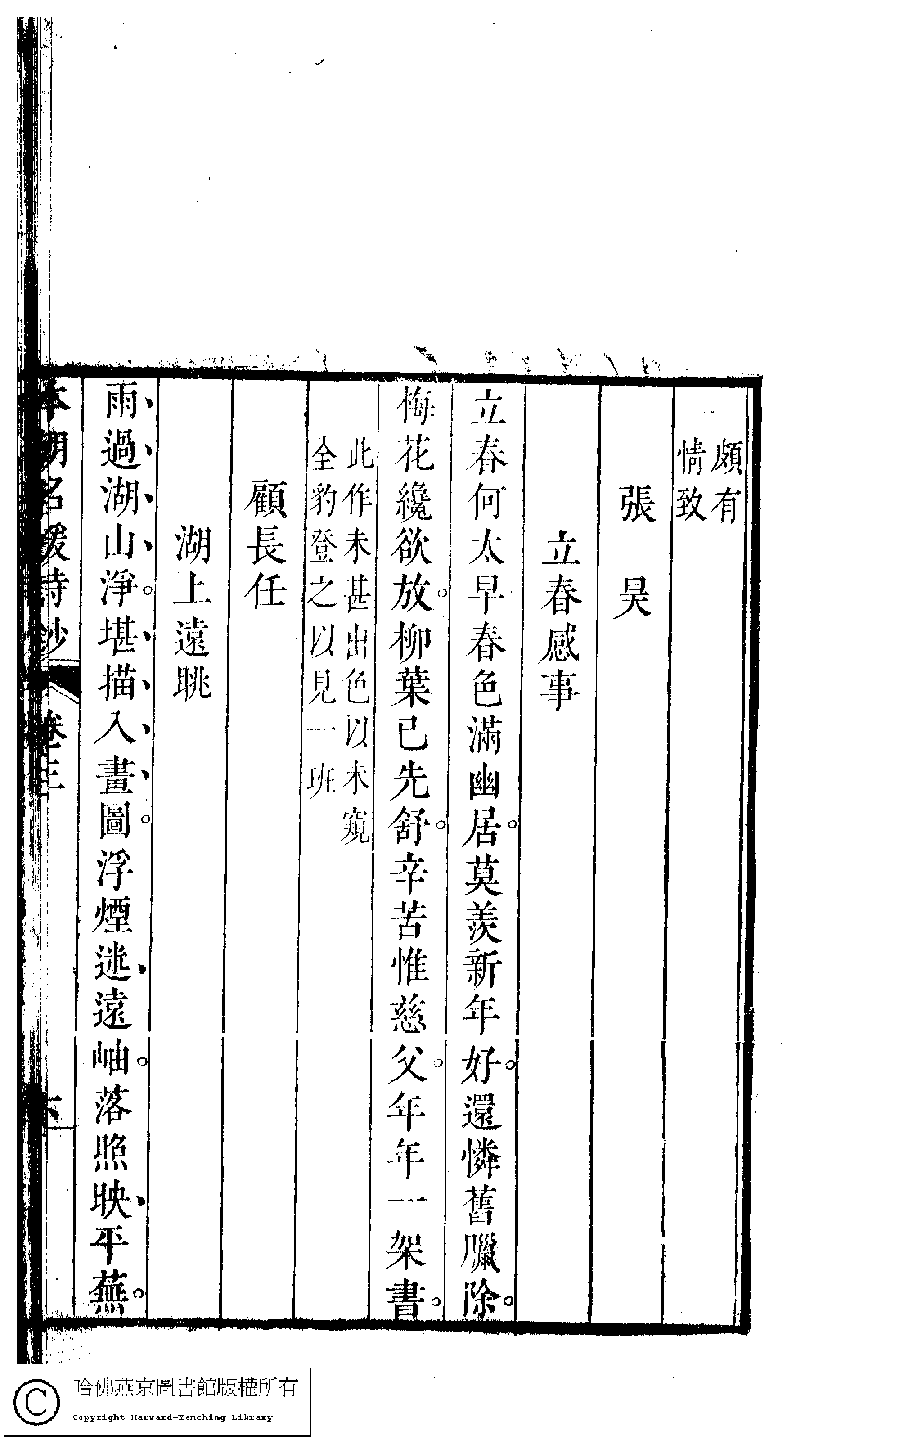 頗有
情致
張 昊
立春感事
立春何太早春色滿幽居。莫羨新年好。還憐舊臘除。
梅花纔欲放。柳葉已先舒。辛苦惟慈父。年年一架書。
此作未甚出色以未窺
全豹登之以見一班
顧長任
湖上遠眺
雨過湖山淨。堪描入畫圖。浮煙迷遠岫。落照映平蕪。
本朝名媛詩鈔 卷三 六
哈佛燕京圖書館版權所有
Copyright Harvard-Yenching Library